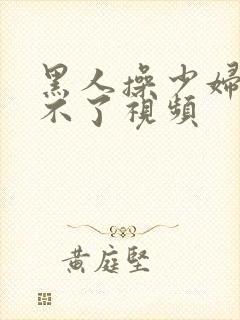 黑人操少婦
不了視頻
黄庭堅